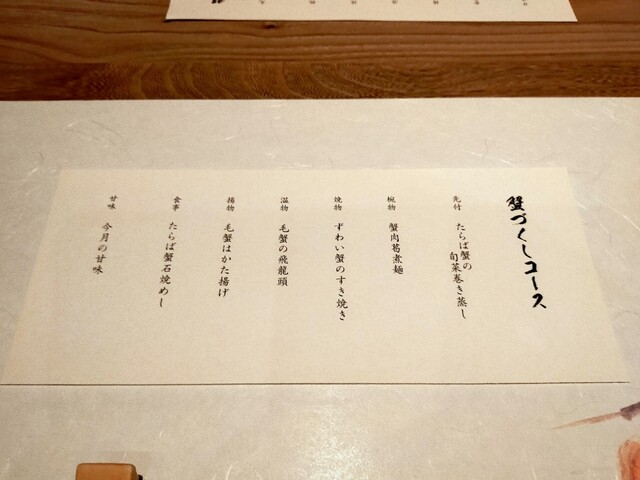 蟹づくしコース
先付
たらば蟹の
旬菜巻き蒸し
椀物
蟹肉葛煮麺
焼物
ずわい蟹のすき焼き
温物
毛蟹の飛龍頭
揚物
毛蟹はかた揚げ
食事
たらば蟹石焼めし
甘味
今月の甘味